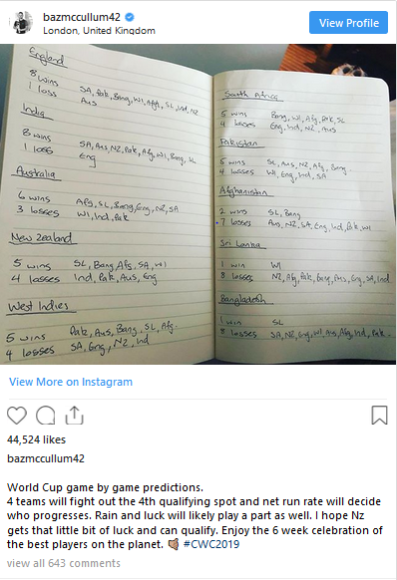 bazmccullum42
London, United Kingdom
View Profile
England
8 wins SA, Pak, Bang, WI, Afg, SL, Ind, NZ
1 loss Aus
India
8 wins SA, Aus, NZ, Pak, Afg, WI, Bang, SL
1 loss Eng
Australia
6 wins Afg, SL, Bang, Eng, NZ, SA
3 losses WI, Ind, Pak
New Zealand
5 wins SL, Bang, Afg, SA, WI
4 losses Ind, Pak, Aus, Eng
West Indies
5 wins Pak, Aus, Bang, SL, Afg.
4 losses SA, Eng, NZ, Ind
South Africa
5 wins Bang, WI, Afg, Pak, SL
4 losses Eng, Ind, NZ, Aus
Pakistan
5 wins SL, Aus, NZ, Afg, Bang
4 losses WI, Eng, Ind, SA
Afghanistan
2 wins SL, Bang
7 losses Aus, NZ, SA, Eng, Ind, Pak, WI
Sri Lanka
1 win WI
8 losses NZ, Afg, Pak, Bang, Aus, Eng, SA, Ind
Bangladesh
1 win SL
8 losses SA, NZ, Eng, WI, Aus, Afg, Ind, Pak.
View More on Instagram
44,524 likes
bazmccullum42
World Cup game by game predictions.
4 teams will fight out the 4th qualifying spot and net run rate will decide
who progresses. Rain and luck will likely play a part as well. I hope Nz
gets that little bit of luck and can qualify. Enjoy the 6 week celebration of
the best players on the planet. 👊🏽 #CWC2019
view all 643 comments